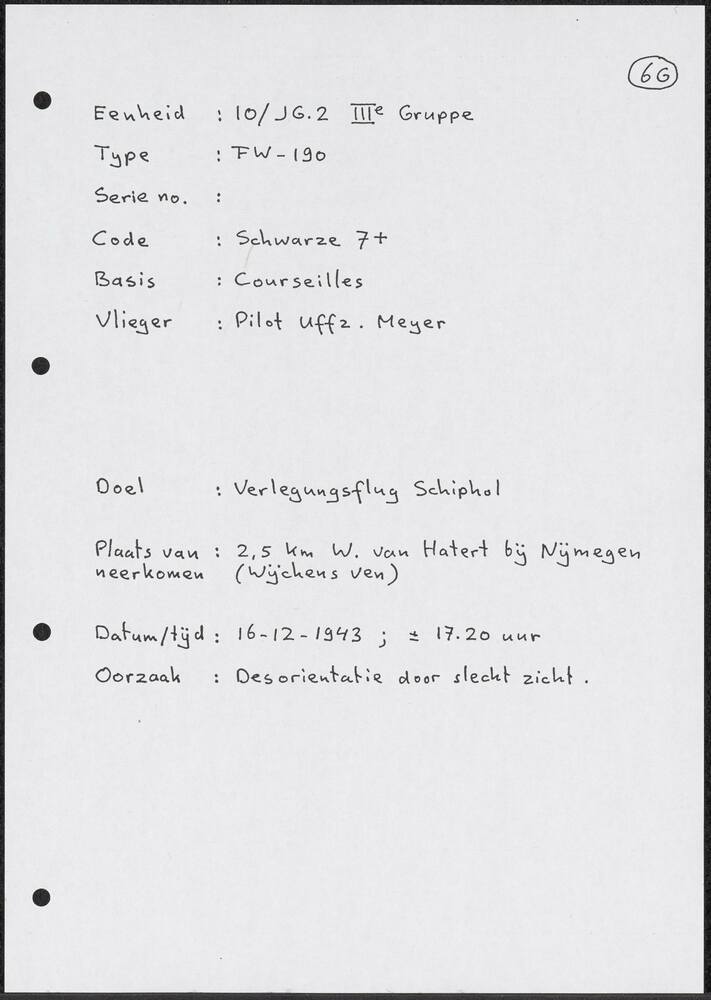 6G
Eenheid : 10/JG.2 IIIe Gruppe
Type : FW-190
Serie no. :
Code : Schwarze 7+
Basis : Courseilles
Vlieger : Pilot Uffz. Meyer
Doel : Verlegungsflug Schiphol
Plaats van : 2,5 km W. van Hatert bij Nijmegen
neerkomen (Wijchens ven)
Datum/tijd : 16-12-1943 ; ± 17.20 uur
Oorzaak : Desorientatie door slecht zicht.